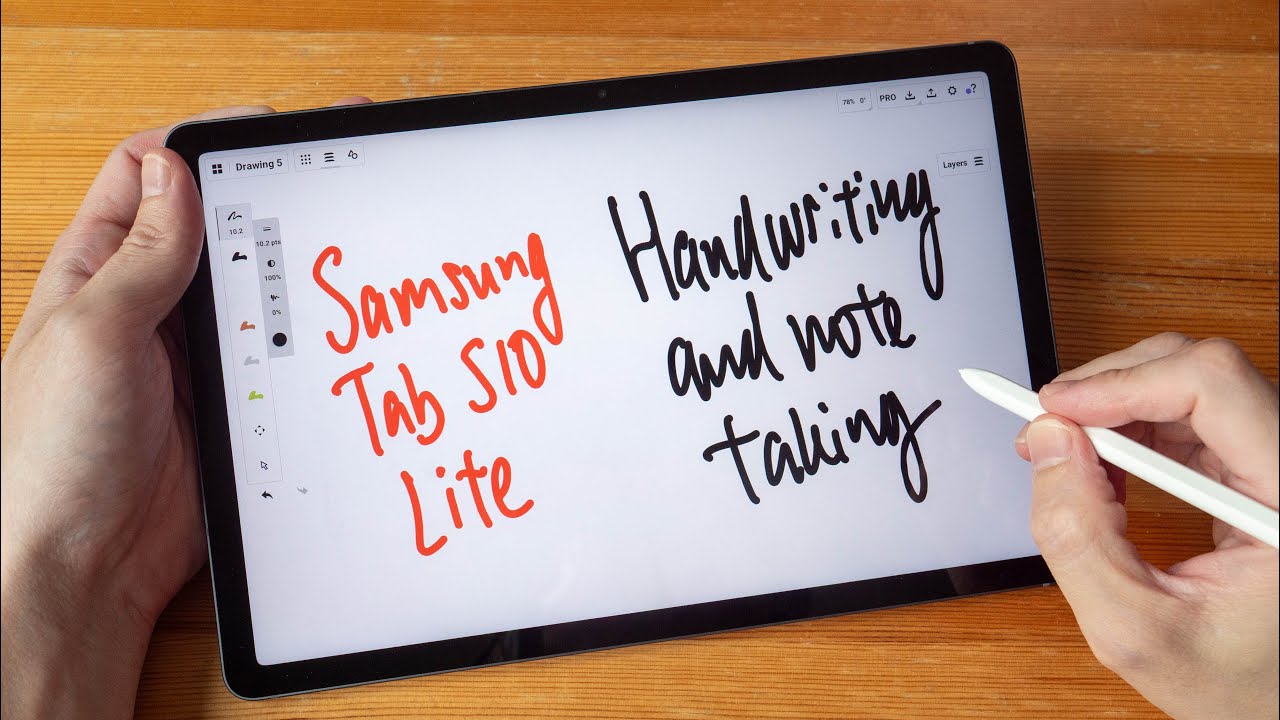 Drawing 5
78% 0°
PRO
?
Layers
10.2
10.2 pts
100%
0%
Samsung
Tab S10
Lite
Handwriting
and note
taking